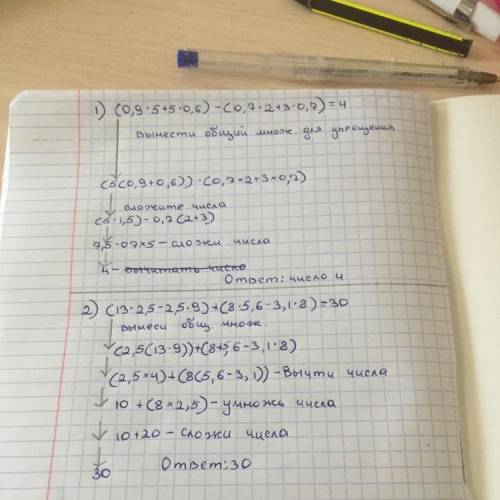 1) (0,9·5+5·0,6)-(0,7·2+3·0,7)=4
Вынести общий множ. для упрощения
(5(0,9+0,6))-(0,7×2+3×0,7)
сложите числа
(5·1,5)-0,7(2+3)
7,5-07×5-сложи числа
4-вычитать число
Ответ: число 4
2) (13·2,5-2,5·9)+(8·5,6-3,1·8)=30
вынеси общ. множ.
(2,5(13-9))+(8·5,6-3,1·8)
(2,5×4)+(8(5,6-3,1))-Вычти числа
10+(8×2,5)-умножь числа
10+20-сложи числа
30
Ответ:30